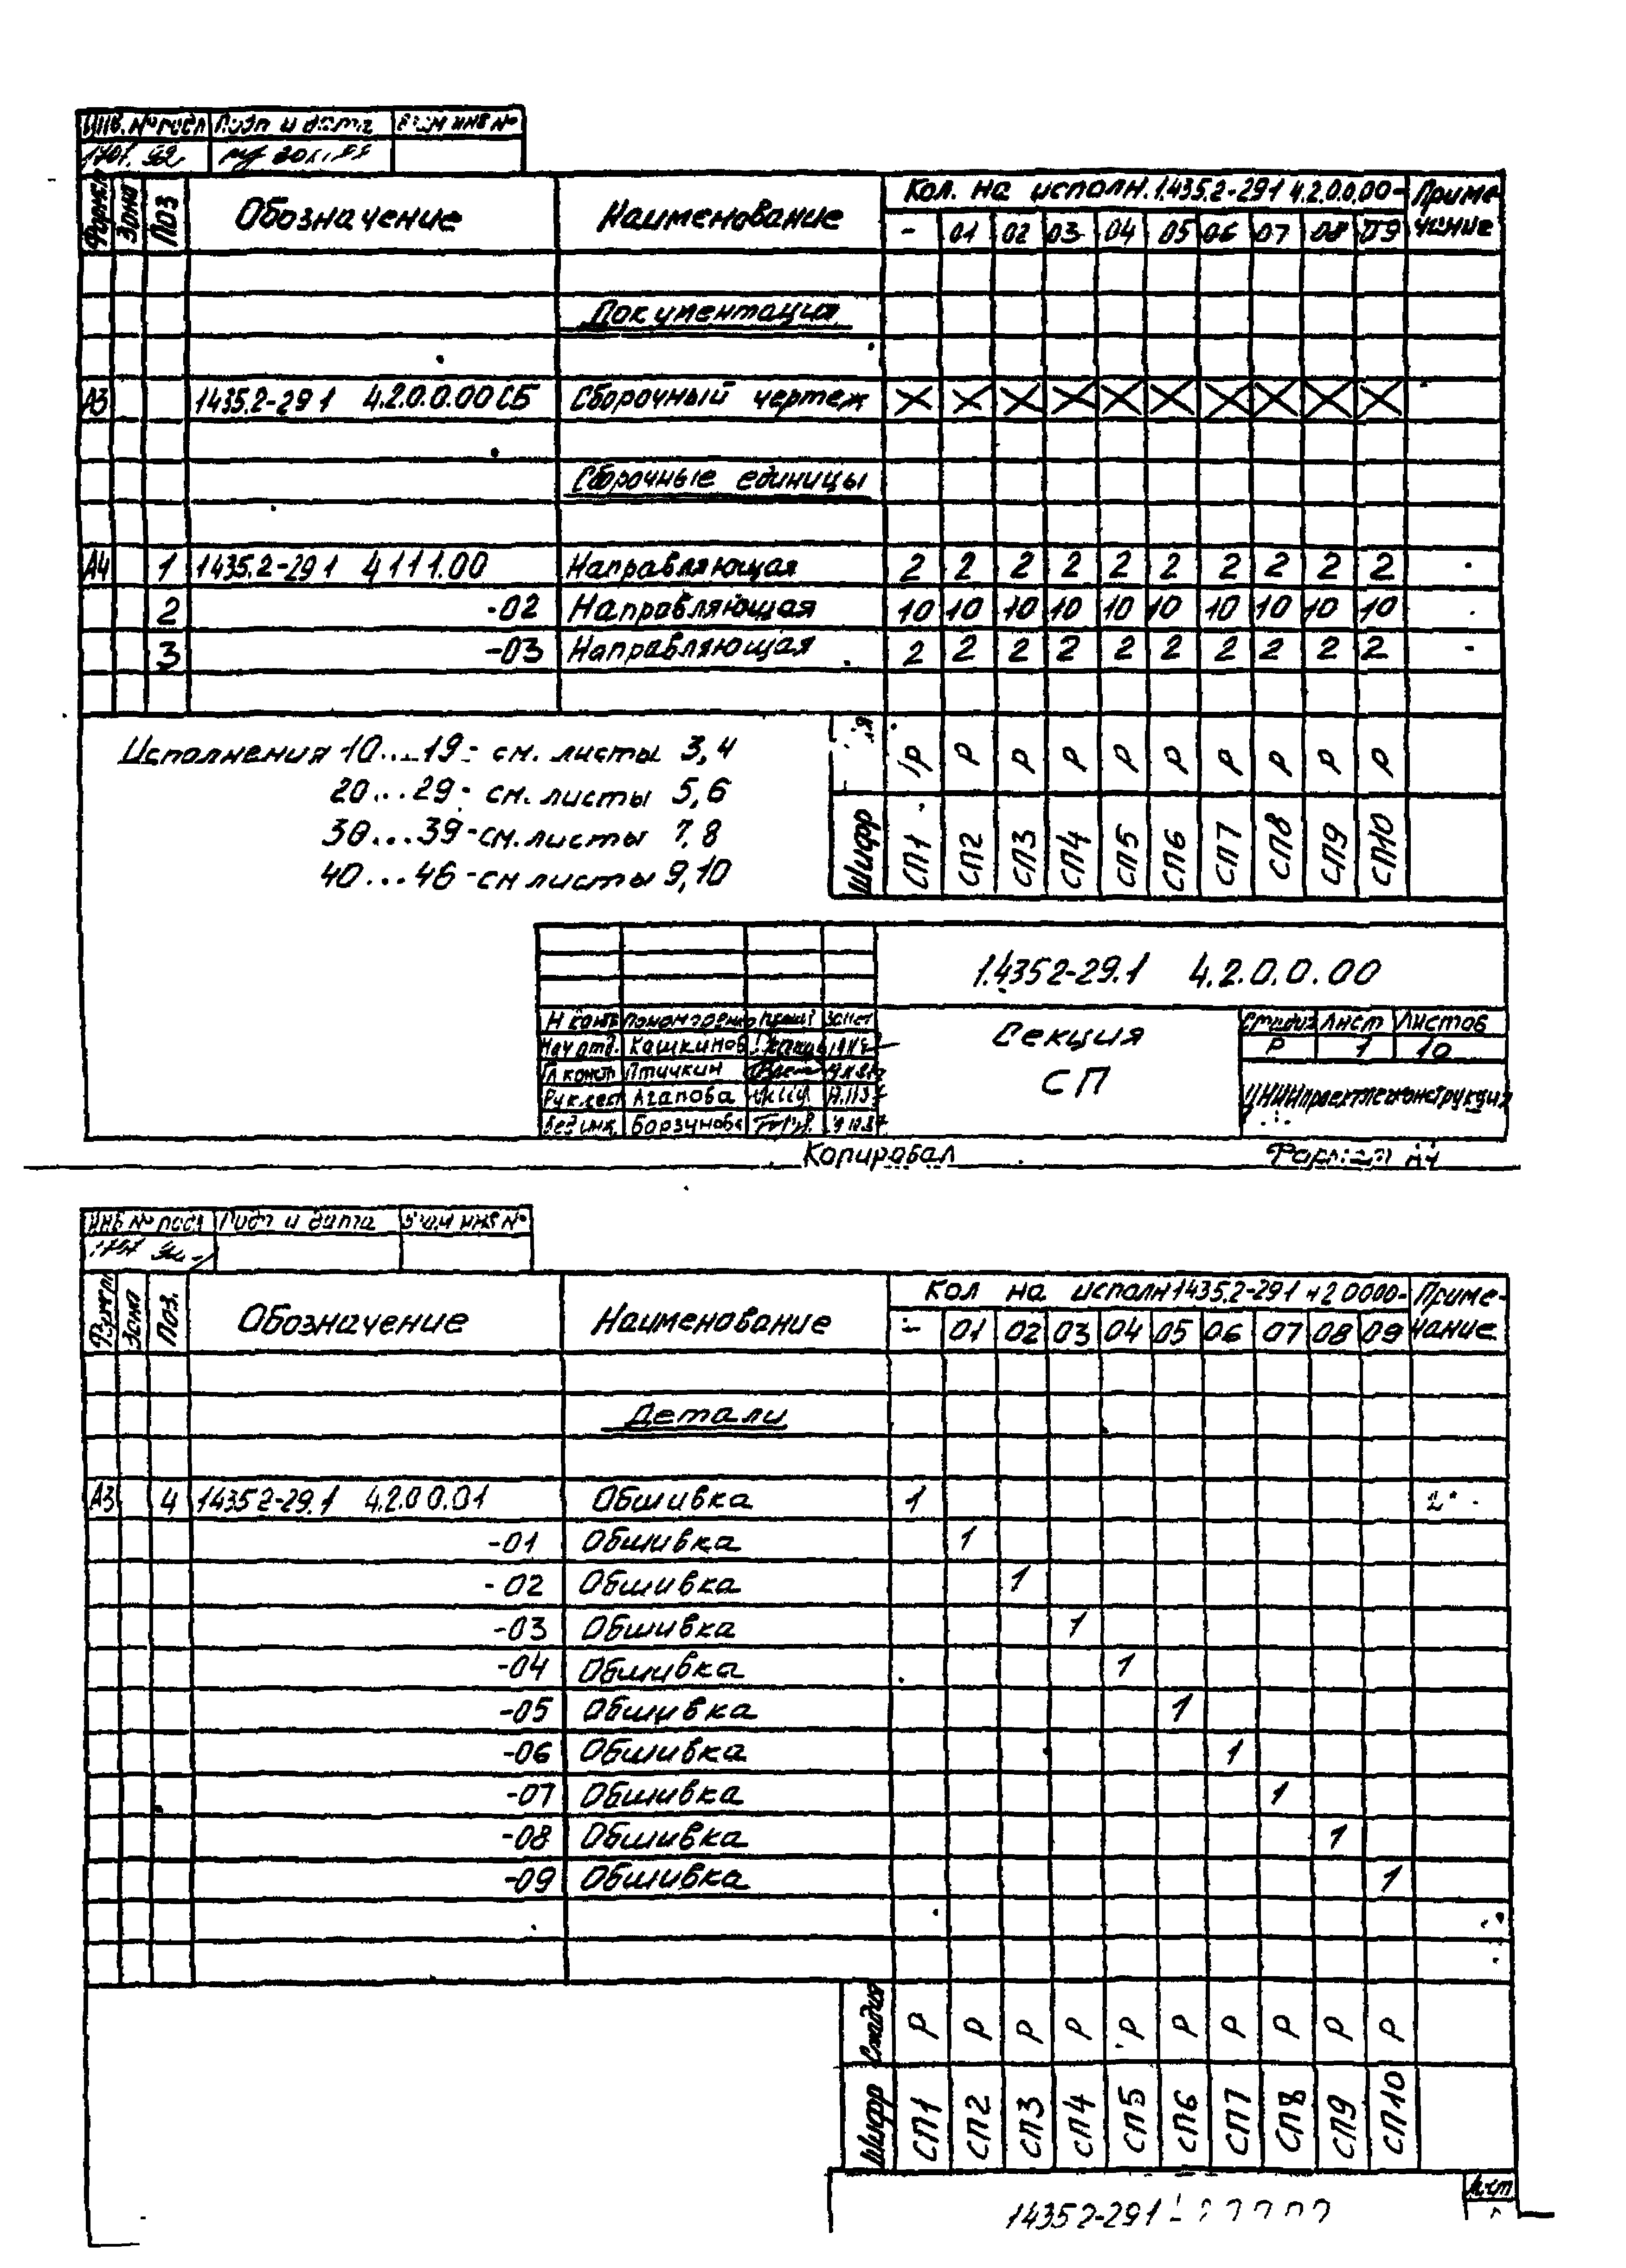 Инв. № подл Подп и дата Взам инв №
Формат Зона Поз Обозначение Наименование Кол. на исполн. 1.435.2-29.1 4.2.0.0.00- Приме-
- 01 02 03 04 05 06 07 08 09 чание
Документация
А3 1435.2-29 1 4.2.0.0.00 СБ Сборочный чертеж X X X X X X X X X X
Сборочные единицы
А4 1 1435.2-29 1 4 1 1 1.00 Направляющая 2 2 2 2 2 2 2 2 2 2
2 -02 Направляющая 10 10 10 10 10 10 10 10 10 10
3 -03 Направляющая 2 2 2 2 2 2 2 2 2 2
Исполнения 10...19- см. листы 3,4
20...29- см. листы 5,6
30...39-см. листы 7,8
40...46-см листы 9,10
Р Р Р Р Р Р Р Р Р Р
Шифр СП1 СП2 СП3 СП4 СП5 СП6 СП7 СП8 СП9 СП10
1.4352-29.1 4.2.0.0.00
Н конт Пономаренко
Нач отд. Кашкинов
Гл констр Птичкин
Рук.сект Агапова
Вед инж. Борзунова
Секция
СП
Стадия Лист Листов
Р 1 10
ЦНИИпроектлегконструкция
Копировал Формат А4
Инв № подл Подп и дата Взам инв №
Формат Зона Поз. Обозначение Наименование Кол на исполн 1435.2-29.1 4 2 0 0 00- Приме-
- 01 02 03 04 05 06 07 08 09 чание
Детали
А3 4 1435 2-29.1 4.2.0 0.01 Обшивка 1
-01 Обшивка 1
-02 Обшивка 1
-03 Обшивка 1
-04 Обшивка 1
-05 Обшивка 1
-06 Обшивка 1
-07 Обшивка 1
-08 Обшивка 1
-09 Обшивка 1
Стадия Р Р Р Р Р Р Р Р Р Р
Шифр СП1 СП2 СП3 СП4 СП5 СП6 СП7 СП8 СП9 СП10
1435 2-29 1
Лист